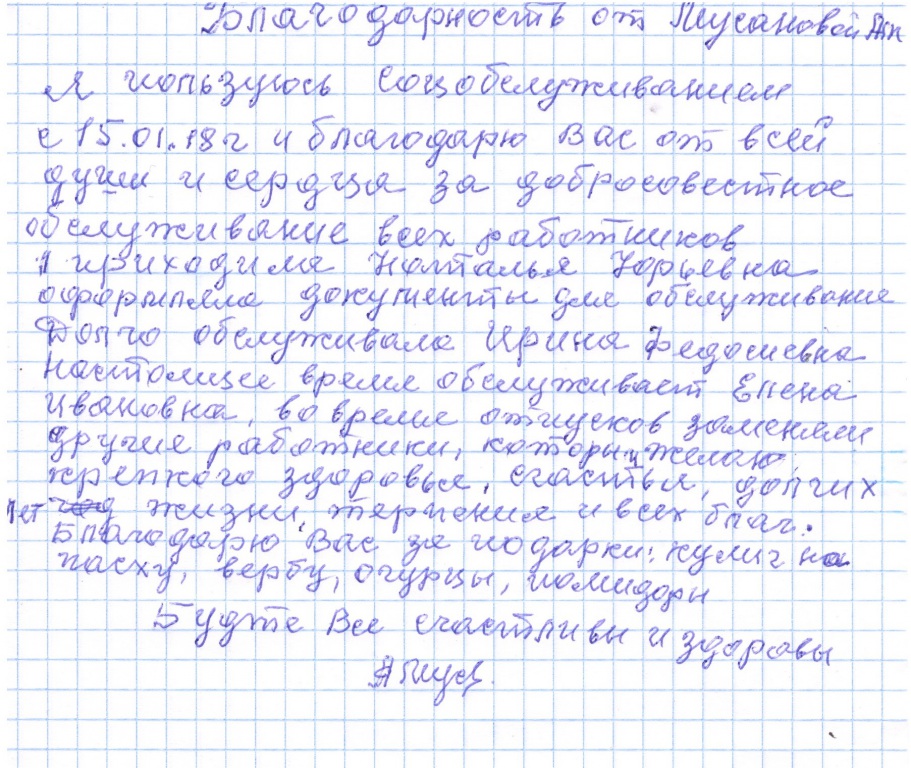 Благодарность от Мусановой
Я пользуюсь Соцобслуживанием
с 15.01.18г и благодарю Вас от всей
души и сердца за добросовестное
обслуживание всех работников
1 приходила Наталья Юрьевна
оформляла документы для обслуживание
Долго обслуживала Ирина Федосиевна
настоящее время обслуживает Елена
Ивановна, во время отпусков заменяли
другие работники, которым желаю
крепкого здоровья, счастья, долгих
лет жизни, терпения и всех благ.
Благодарю Вас за подарки: кулич на
пасху, вербу, огурцы, помидоры
Будте Все счастливы и здоровы